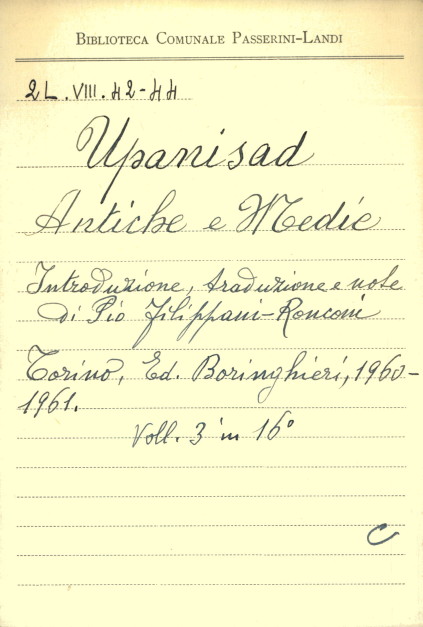 BIBLIOTECA COMUNALE PASSERINI-LANDI
2L.VIII.42-44
Upanisad
Antiche e Medie
Introduzione, traduzione e note
di Pio Filippani-Ronconi
Torino, Ed. Boringhieri, 1960-
1961.
Voll. 3 in 16°
C